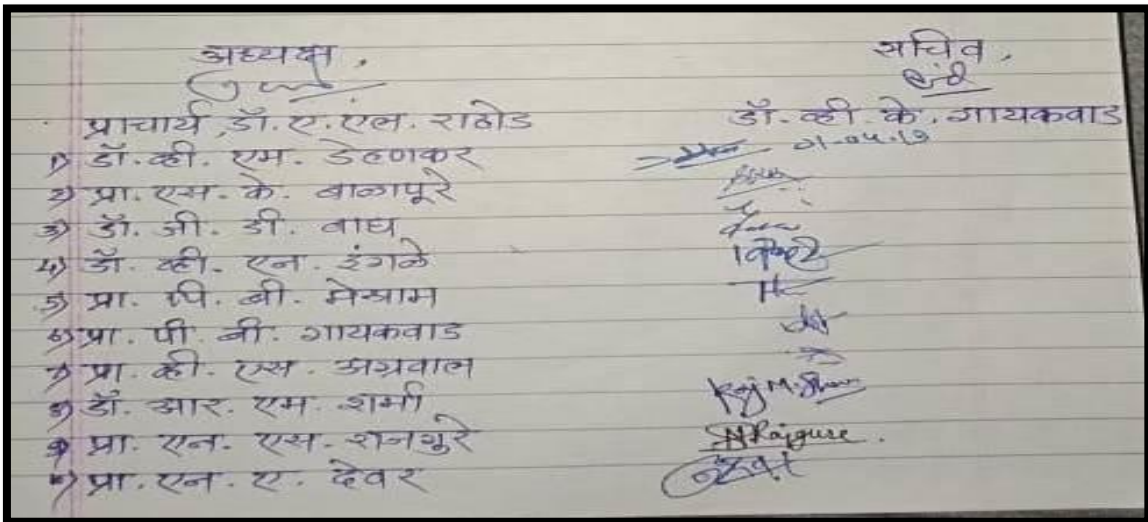 अध्यक्ष, सचिव,
प्राचार्य डॉ. ए. एल. राठोड डॉ. व्ही. के. गायकवाड
1) डॉ. व्ही. एम. डेहणकर
2) प्रा. एस. के. बाळापूरे
3) डॉ. जी. डी. वाघ
4) डॉ. व्ही. एन. इंगळे
5) प्रा. पि. बी. मेश्राम
6) प्रा. पी. बी. गायकवाड
7) प्रा. व्ही. एस. अग्रवाल
8) डॉ. आर. एम. शर्मा Raj M. Sharma
9) प्रा. एन. एस. राजगूरे NRajgure.
10) प्रा. एन. ए. देवर